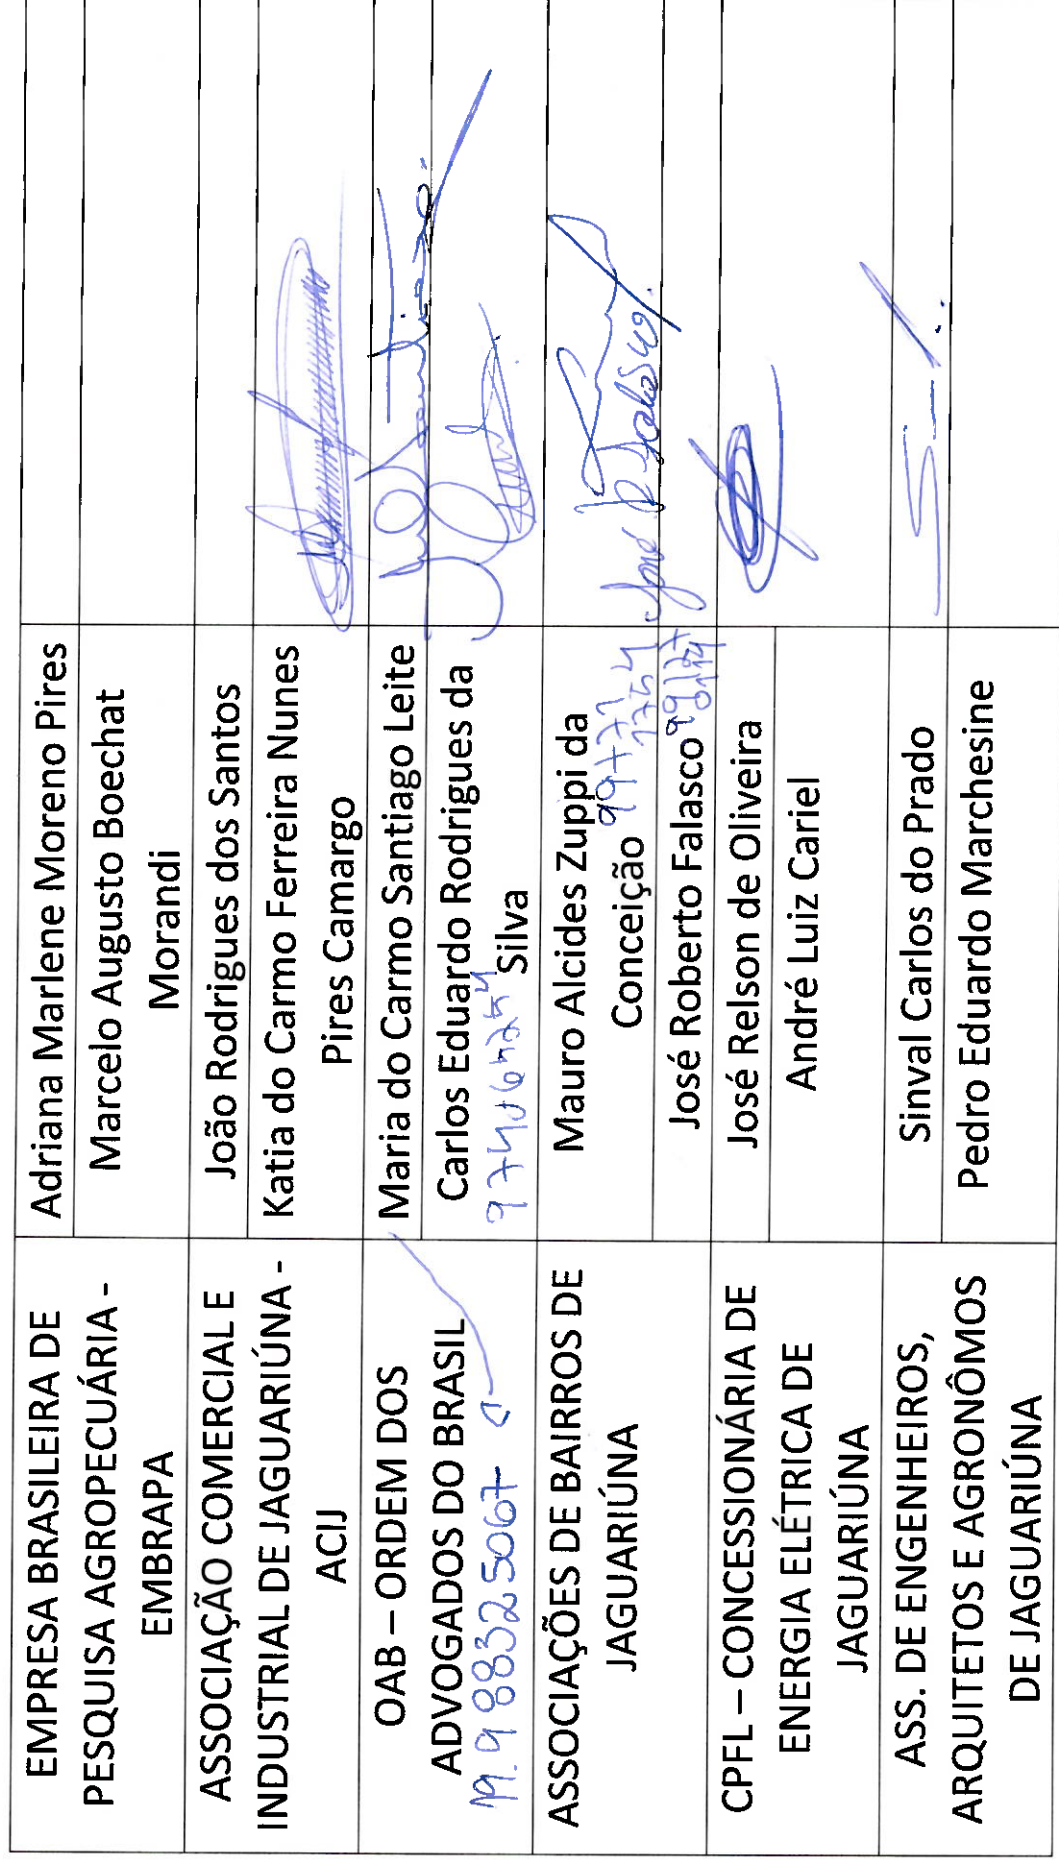 EMPRESA BRASILEIRA DE
PESQUISA AGROPECUÁRIA -
EMBRAPA
Adriana Marlene Moreno Pires
Marcelo Augusto Boechat
Morandi
ASSOCIAÇÃO COMERCIAL E
INDUSTRIAL DE JAGUARIÚNA -
ACIJ
João Rodrigues dos Santos
Katia do Carmo Ferreira Nunes
Pires Camargo
OAB – ORDEM DOS
ADVOGADOS DO BRASIL
19.988325067
Maria do Carmo Santiago Leite
Carlos Eduardo Rodrigues da
Silva
ASSOCIAÇÕES DE BAIRROS DE
JAGUARIÚNA
Mauro Alcides Zuppi da
Conceição
99771
1754
José Roberto Falasco
José R Falasco
CPFL – CONCESSIONÁRIA DE
ENERGIA ELÉTRICA DE
JAGUARIÚNA
José Relson de Oliveira
André Luiz Cariel
ASS. DE ENGENHEIROS,
ARQUITETOS E AGRONÔMOS
DE JAGUARIÚNA
Sinval Carlos do Prado
Pedro Eduardo Marchesine